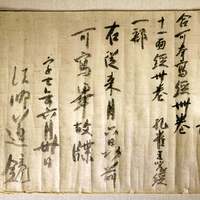 合可奉寫經卌卷
十一面經卅卷 孔雀王呪經
一部
右從来月六日以前
可寫畢故牒
字七年六月卅日
法師道鏡